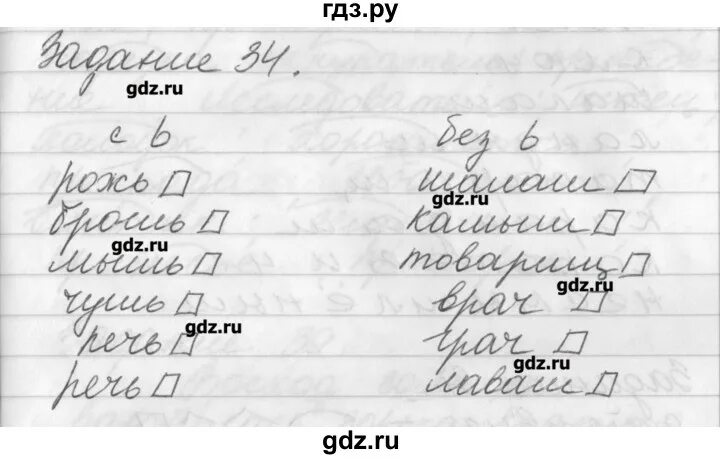 гдз.ру
Задание 34.
gdz.ru
с ь без ь
рожь шалаш
gdz.ru
брошь камыш
gdz.ru
мышь товарищ
gdz.ru
чушь врач
gdz.ru
печь грач
gdz.ru
речь лаваш
gdz.ru